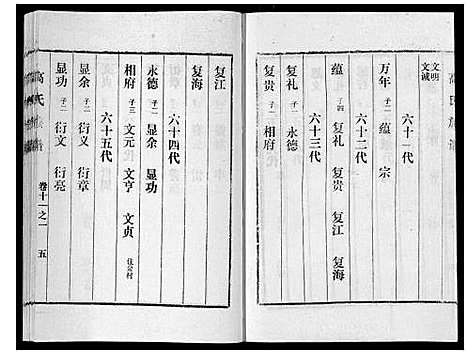 高氏族谱
文明
文诚
六十一代
万年 子二 蕴 宗
六十二代
蕴 子四 复礼 复贵 复江 复海
六十三代
复礼 子一 永德
复贵 子一 相府
复江
复海
六十四代
永德 子二 显余 显功
相府 子三 文元 文亨 文贞 住金村
六十五代
显余 子二 衍义 衍章
显功 子二 衍文 衍亮
高氏族谱
卷十一之一
五